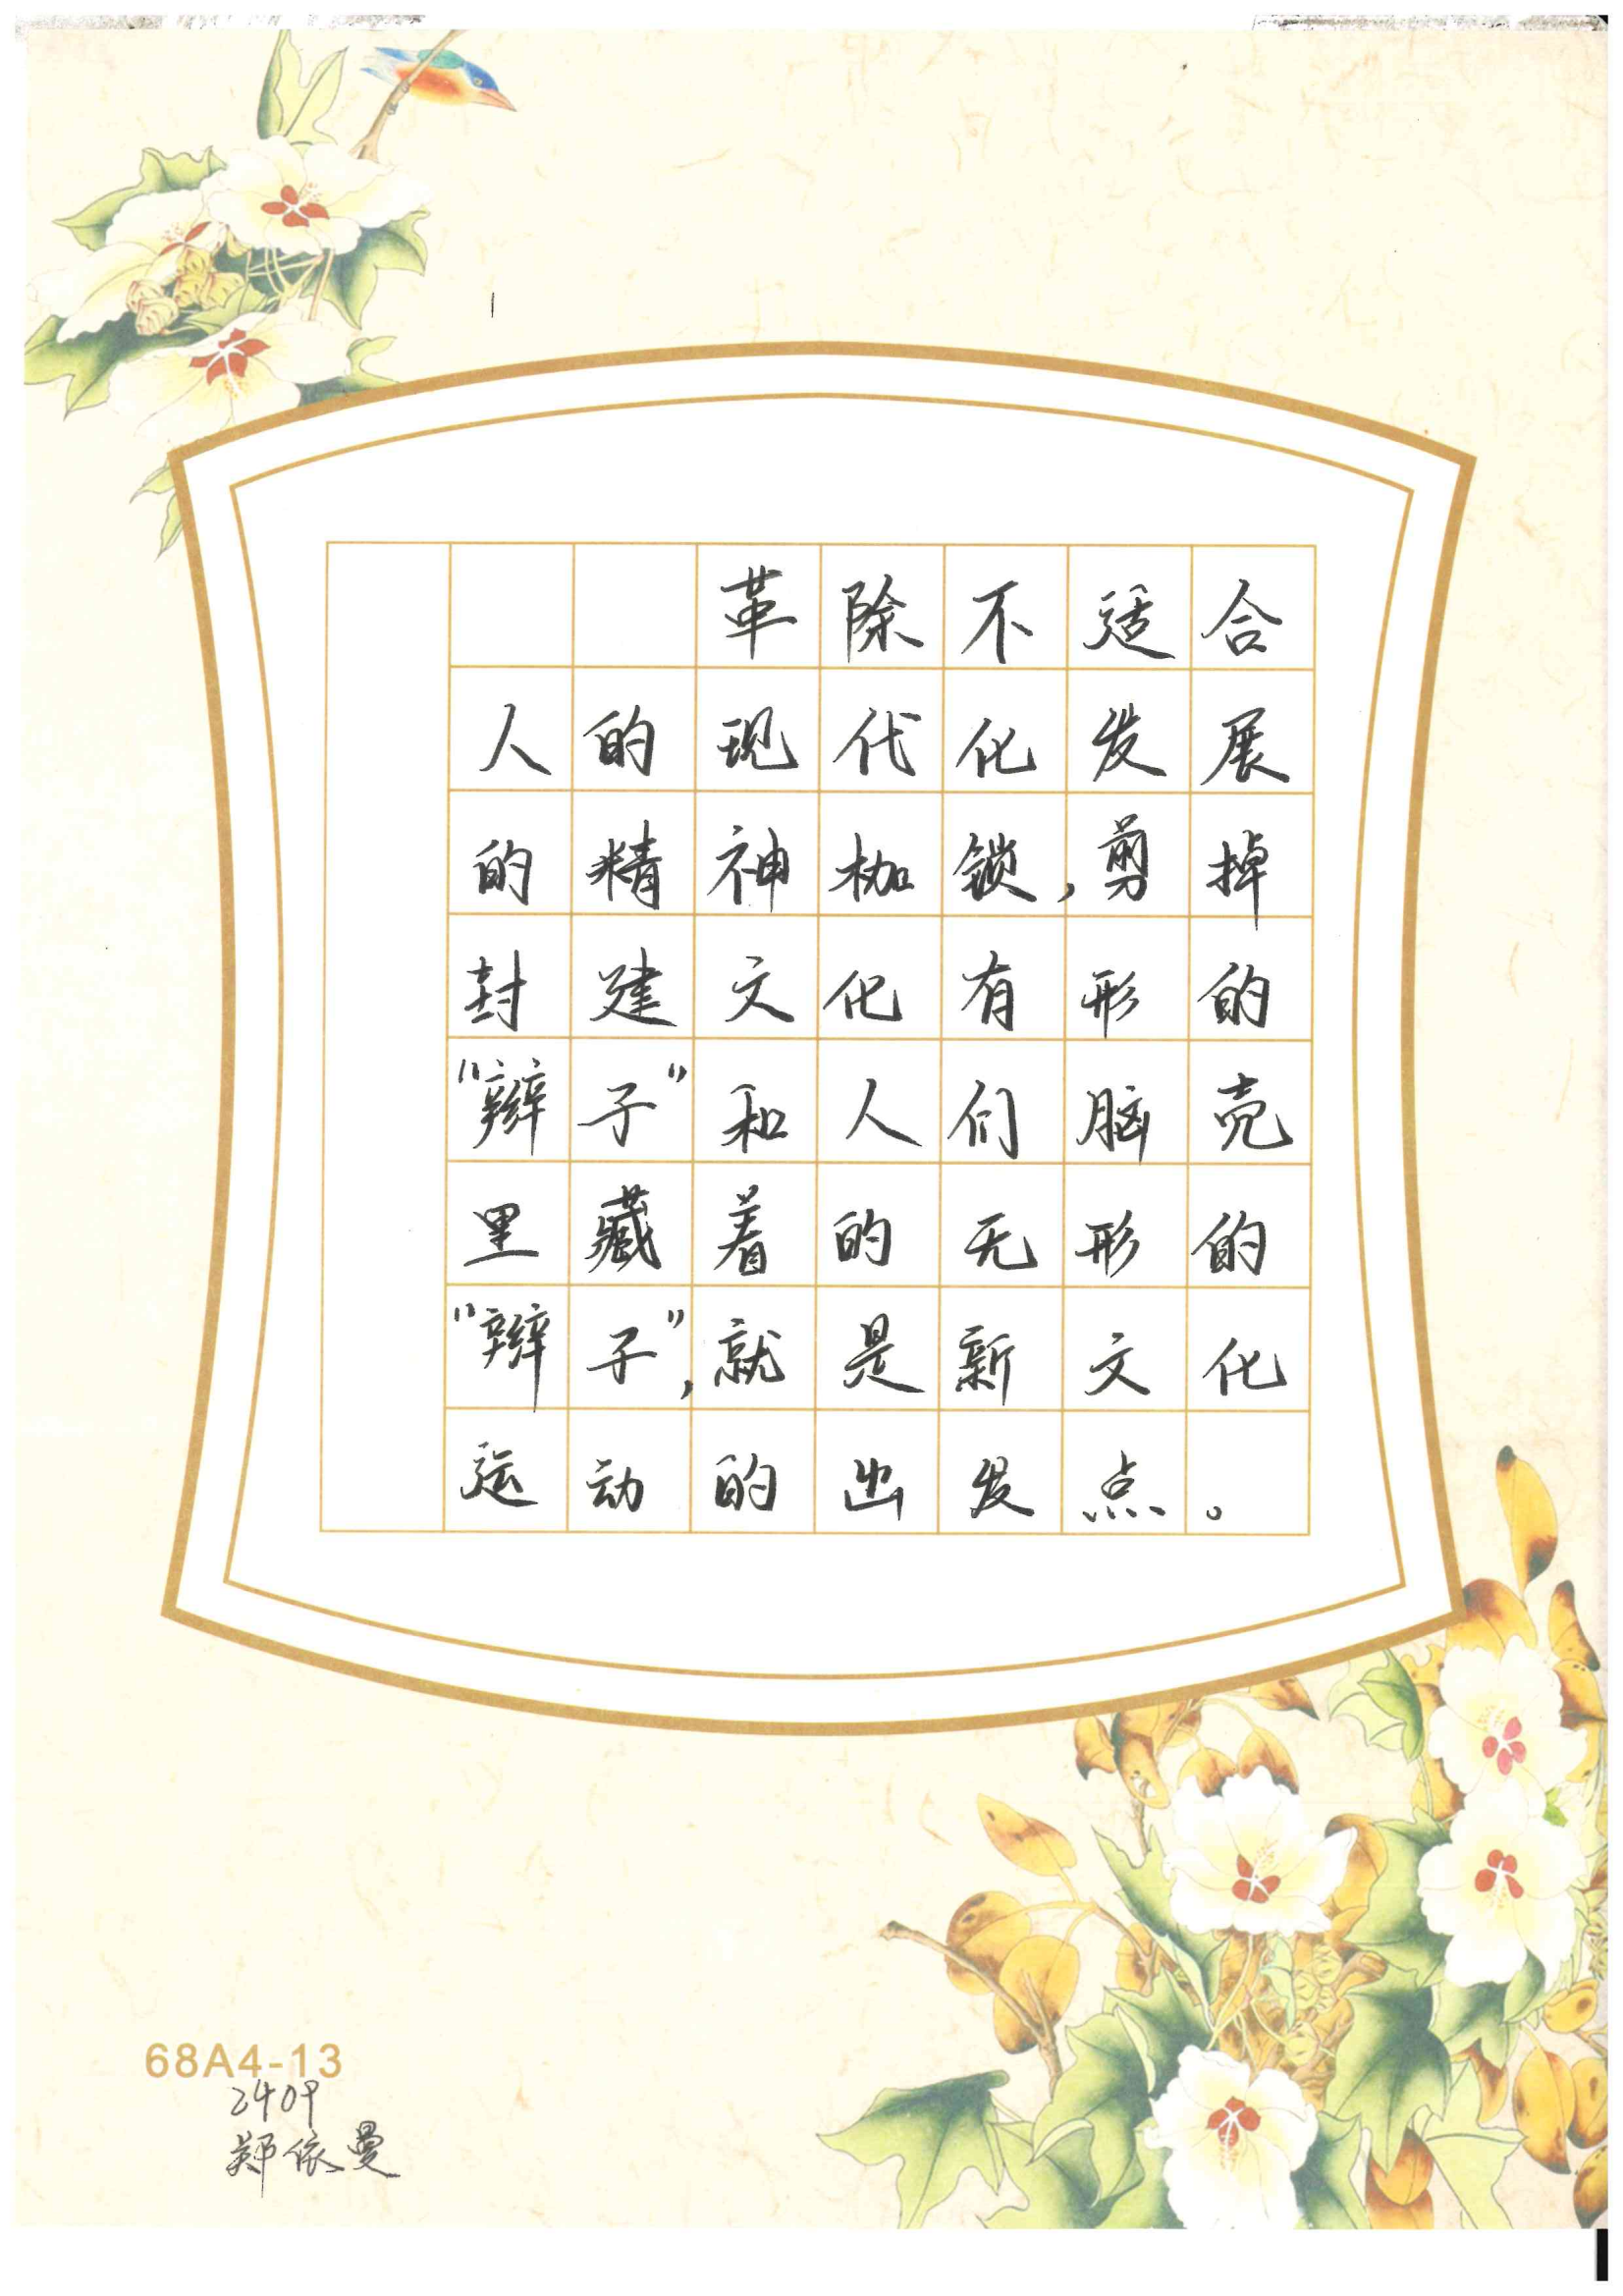 革除不适合
人的现代化发展
的精神枷锁，剪掉
封建文化有形的
“辫子”和人们脑壳
里藏着的无形的
“辫子”，就是新文化
运动的出发点。
68A4-13
2409
郑依曼